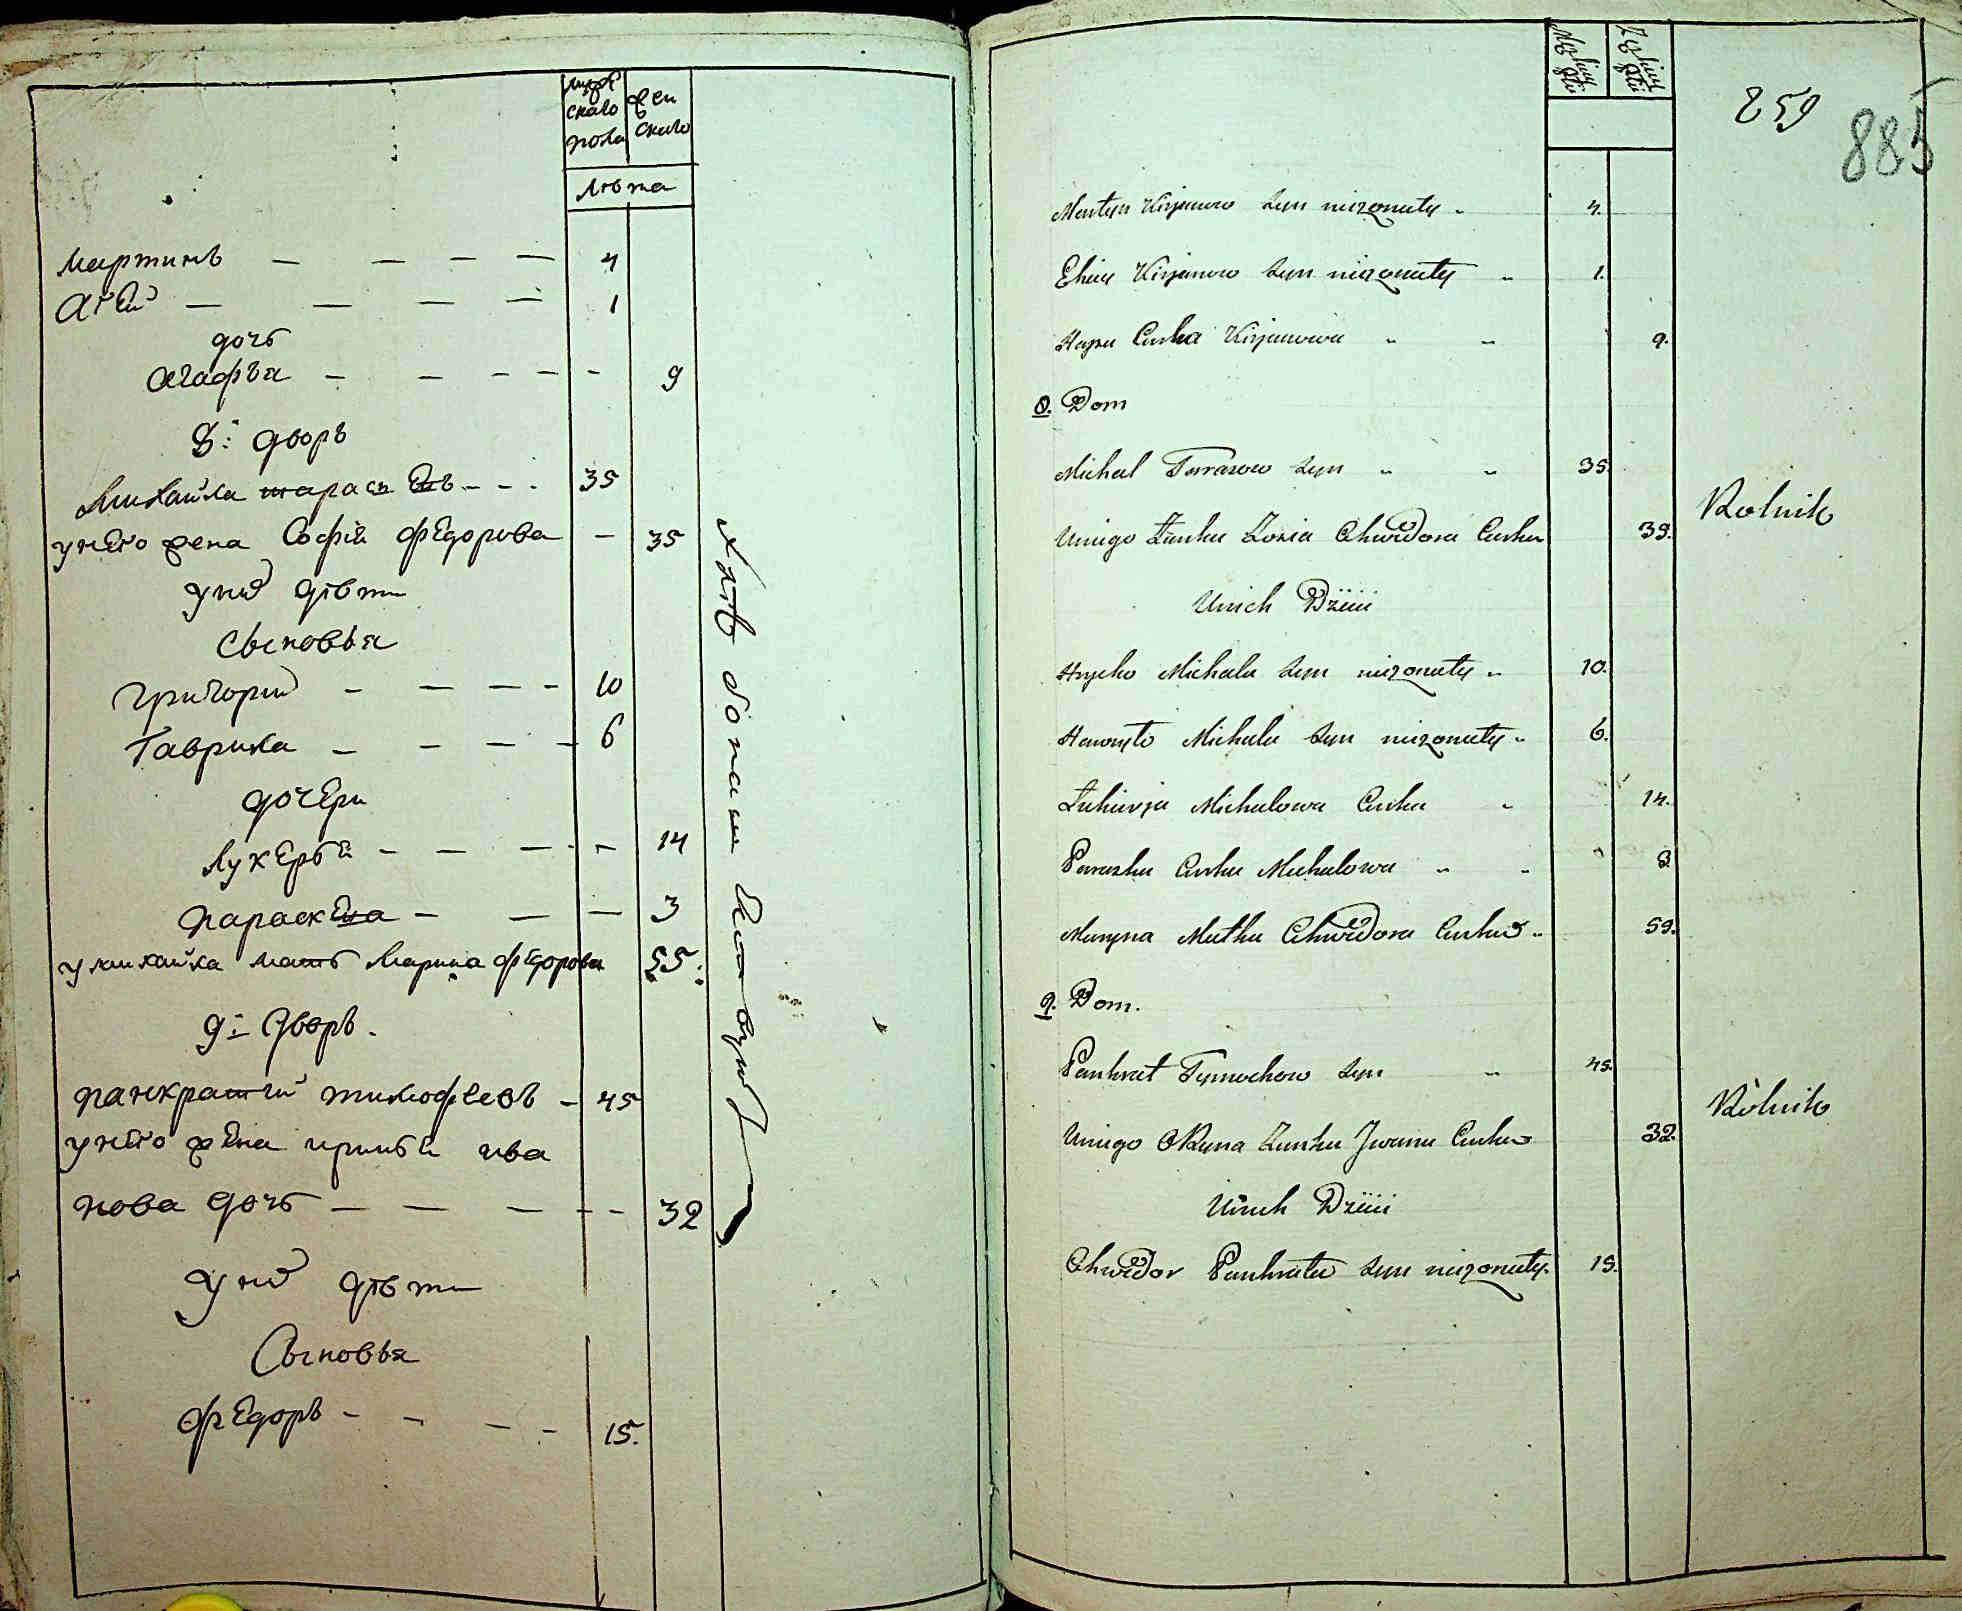 мужскаго пола
женскаго
лѣта
Мартинъ — — — — 4
Агѣй — — — — 1
дочь
Агафѣа — — — — — 9
8: дворъ
Михайла тарасѣвъ - - - 35
унѣго жена Софiя фѣдорова — 35
унiй дѣти
Сыновья
Григорий — — — — 10
Гаврила — — — — 6
дочѣри
Лукѣрья — — — — 14
параскѣва — — — 3
умихайла мать Марина фѣдорова 55:
9: дворъ.
панкратий тимофеевъ — 45
унѣго жѣна ирина ива
нова дочь — — — — 32
унiй дѣти
Сыновья
фѣдоръ — — — — 15.
259
885
Martyn Kirjanow Syn nieżonaty 4.
Kirjanow Syn nieżonaty 1.
Hapa Curka Kirjanowa 9.
8. Dom
Michal Tarasow Syn 35.
Uniego Żonka Zosia Chwedora Curka 39.
Rolnik
Unich Dzieci
Hryćko Michala Syn nieżonaty 10.
Hawryło Michala Syn nieżonaty 6.
Łukierja Michalowa Curka 14.
Paraska Curka Michalowa 3
Maryna Matka Chwedora Curka 59.
9. Dom.
Pankrat Tymochow Syn 45.
Rolnik
Uniego Oryna Żonka Jwana Curka 32.
Unich Dzieci
Chwedor Pankrata Syn nieżonaty. 15.